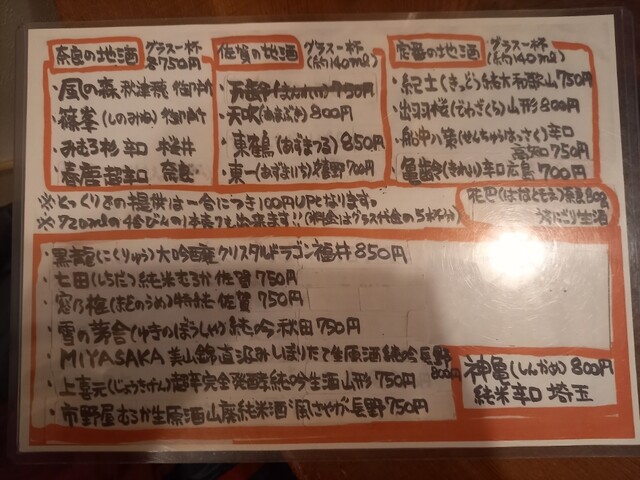 奈良の地酒 グラス一杯 各750円
・風の森 秋津穂 御所
・篠峯(しのみね) 御所
・みむろ杉 辛口 桜井
・春鹿 超辛口 奈良
佐賀の地酒 グラス一杯 (約140ml)
・天吹(あまぶき) 800円
・東鶴(あずまつる) 850円
・東一(あずまいち) 嬉野 700円
定番の地酒 グラス一杯 (約140ml)
・紀土(きっど) 純大 和歌山 750円
・出羽桜(でわざくら) 山形 800円
・船中八策(せんちゅうはっさく) 辛口
高知 750円
・亀齢(きれい) 辛口 広島 700円
※とっくりでの提供は一合につき100円UPとなります。
※720mlの4合びんの1本売りも出来ます!! (料金はグラス代金の5杯分)
花巴(はなともえ) 奈良 800
うすにごり生酒
・黒龍(こくりゅう) 大吟醸 クリスタルドラゴン 福井 850円
・七田(しちだ) 純米 むろか 佐賀 750円
・窓乃梅(まどのうめ) 特純 佐賀 750円
・雪の茅舎(ゆきのぼうしゃ) 純吟 秋田 750円
・MIYASAKA 美山錦 直汲み しぼりたて生原酒 純吟 長野
800円
・上喜元(じょうきげん) 超辛 完全発酵 純吟生酒 山形 750円
・市野屋 むろか生原酒 山廃純米酒 "風さやか" 長野 750円
神亀(しんかめ) 800円
純米辛口 埼玉